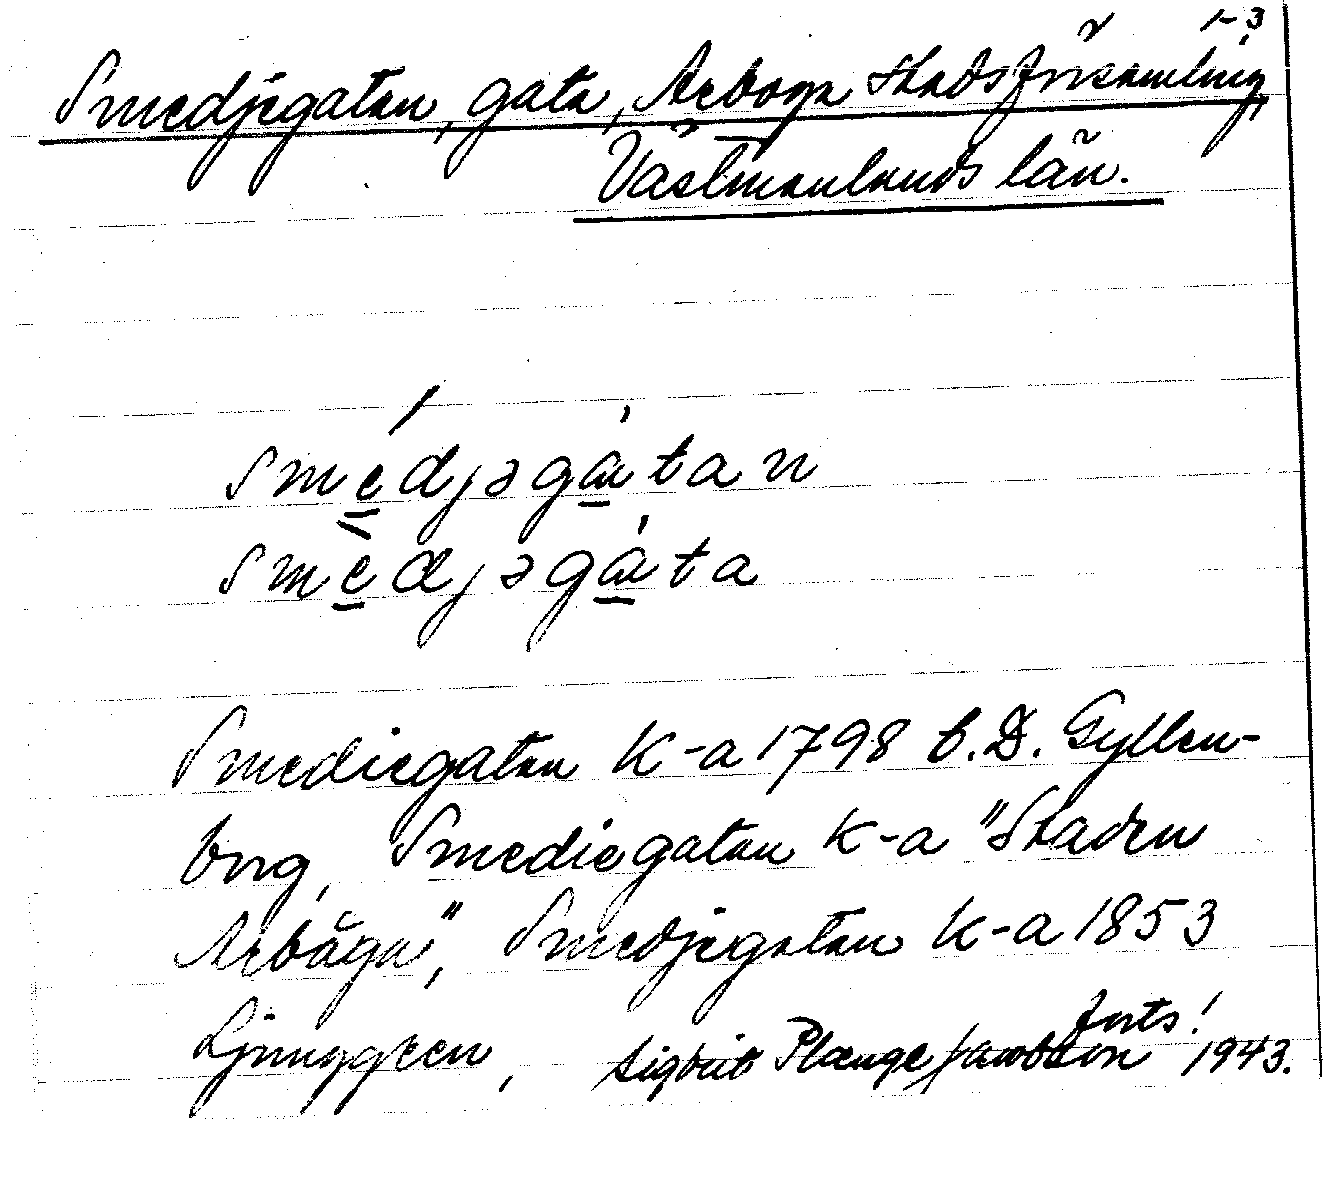 1-3
Smedjegatan, gata, Arboga stadsförsamling,
Västmanlands län.
smédjəgàtan
smèdjəgáta
Smediegatan K-a 1798 b. D. Gyllen-
borg, Smediegatan K-a "Staden
Arbåga", Smedjegatan K-a 1853
Ljunggren, forts!
Sigbrit Plænge Jacobson 1943.